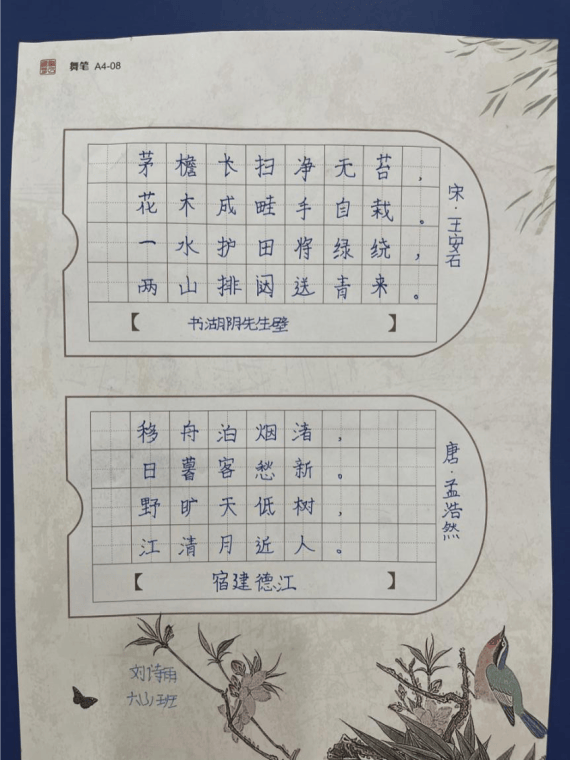 舞笔 A4-08
茅檐长扫净无苔，
花木成畦手自栽。
一水护田将绿绕，
两山排闼送青来。
【 书湖阴先生壁 】
宋·王安石
移舟泊烟渚，
日暮客愁新。
野旷天低树，
江清月近人。
【 宿建德江 】
唐·孟浩然